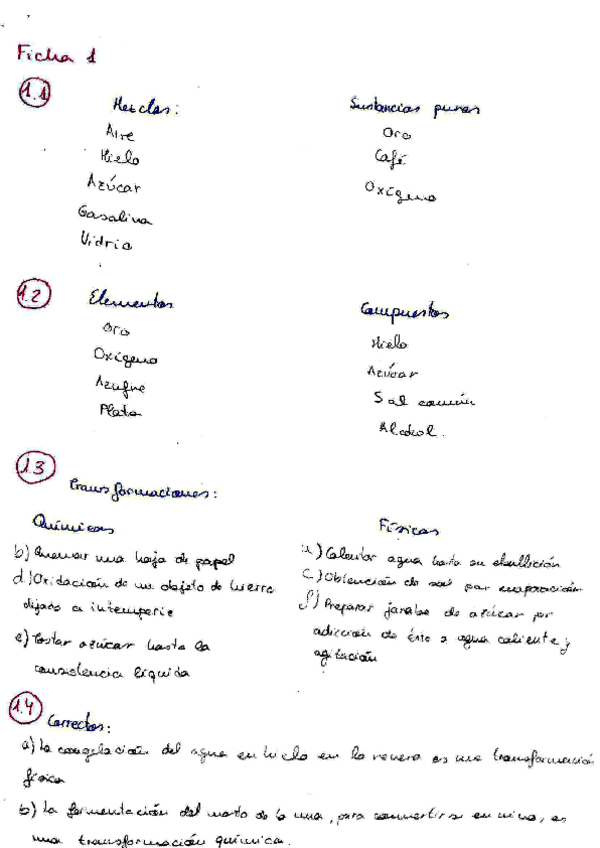 Ficha 1
1.1
Mezclas: Sustancias puras
Aire Oro
Hielo Café
Azúcar Oxígeno
Gasolina
Vidrio
1.2 Elementos Compuestos
Oro Hielo
Oxígeno Azúcar
Azufre Sal común
Plata Alcohol.
1.3 Transformaciones:
Químicas Físicas
b) Quemar una hoja de papel a) Calentar agua hasta su ebullición
d) Oxidación de un objeto de hierro c) Obtención de sal por evaporación
dejado a intemperie f) Preparar jarabe de azúcar por
e) Tostar azúcar hasta la adicción de éste a agua caliente y
consistencia líquida agitación
1.4 Correctas:
a) La congelación del agua en hielo en la nevera es una transformación
física
b) La fermentación del mosto de la uva, para convertirse en vino, es
una transformación química.